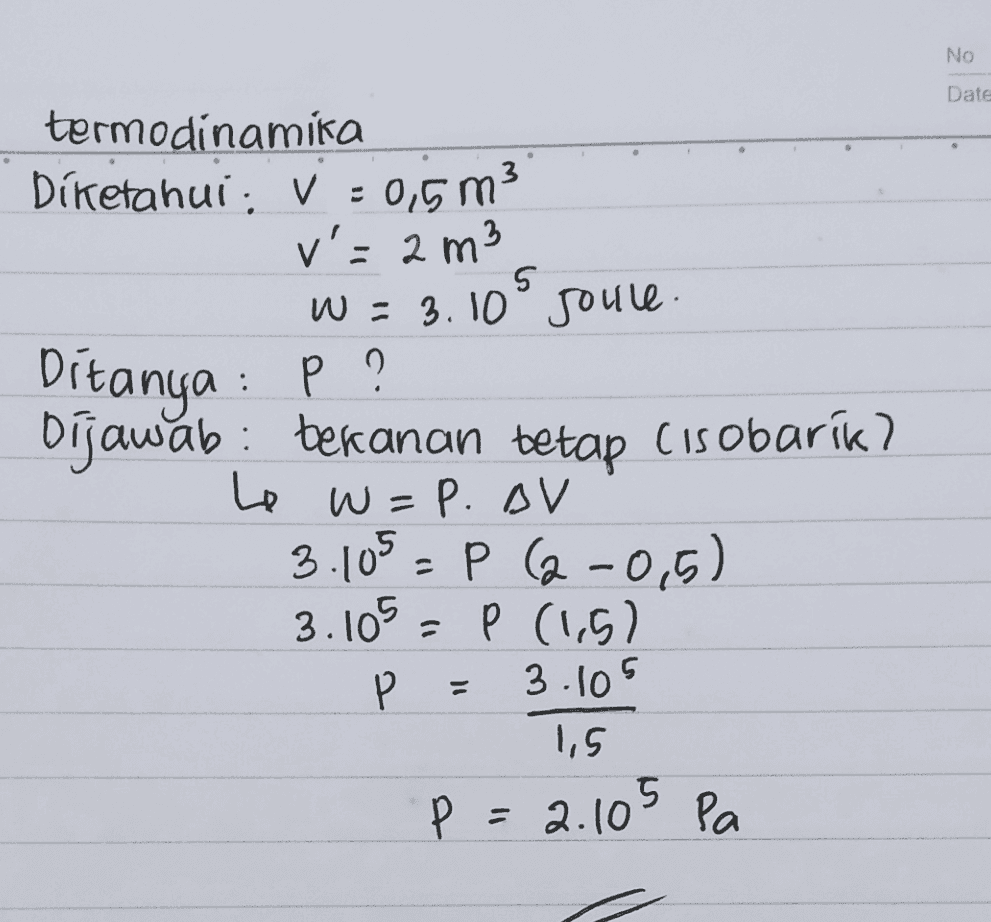 No
Date
termodinamika
Diketahui : V = 0,5 m³
V' = 2 m³
W = 3.10⁵ Joule.
Ditanya : P ?
Dijawab : tekanan tetap (isobarik)
↳ W = P. ΔV
3.10⁵ = P (2 - 0,5)
3.10⁵ = P (1,5)
P = 3.10⁵
1,5
P = 2.10⁵ Pa